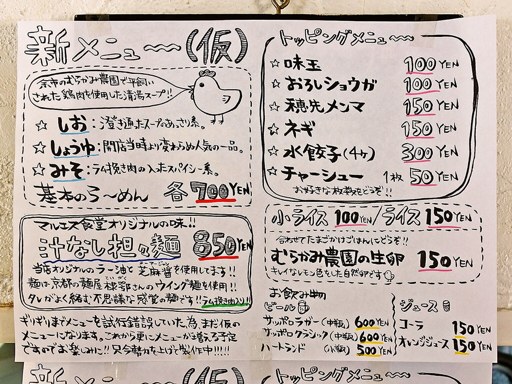 新メニュー〜(仮)
余市のむらかみ農園で平飼い
された鶏肉を使用した清湯スープ!!
☆ しお:澄き通ったスープのあっさり系。
☆ しょうゆ:開店当時より変わらぬ人気の一品。
☆ みそ:ラム挽き肉の入ったスパイシー系。
基本のら〜めん 各700YEN
マルエス食堂オリジナルの味!!
汁なし担々麺 850YEN
当店オリジナルのラー油と芝麻醤を使用してます!!
麺は京都の麺屋 棣鄂さんのウイング麺を使用!!
タレがよく絡む不思議な感覚の麺です!!ラム挽き肉入り!!
ギリギリまでメニューを試行錯誤していた為、まだ仮の
メニューになります。これから更にメニューは増える予定
ですのでお楽しみに!!只今勢力を上げて製作中!!!!
トッピングメニュー〜
☆ 味玉 100YEN
☆ おろしショウガ 100YEN
☆ 穂先メンマ 150YEN
☆ ネギ 150YEN
☆ 水餃子(4ヶ) 300YEN
☆ チャーシュー 1枚 50YEN
お好きな枚数をどうぞ!!
小ライス 100YEN/ライス 150YEN
合わせてたまごかけごはんにどうぞ!!
むらかみ農園の生卵 150YEN
キレイなレモン色をした自然卵です
お飲み物
ビール
サッポロラガー(中瓶) 600YEN
サッポロクラシック(中瓶) 600YEN
ハートランド (小瓶) 500YEN
ジュース
コーラ 150YEN
オレンジジュース 150YEN
新メニュー〜(仮)
トッピングメニュー